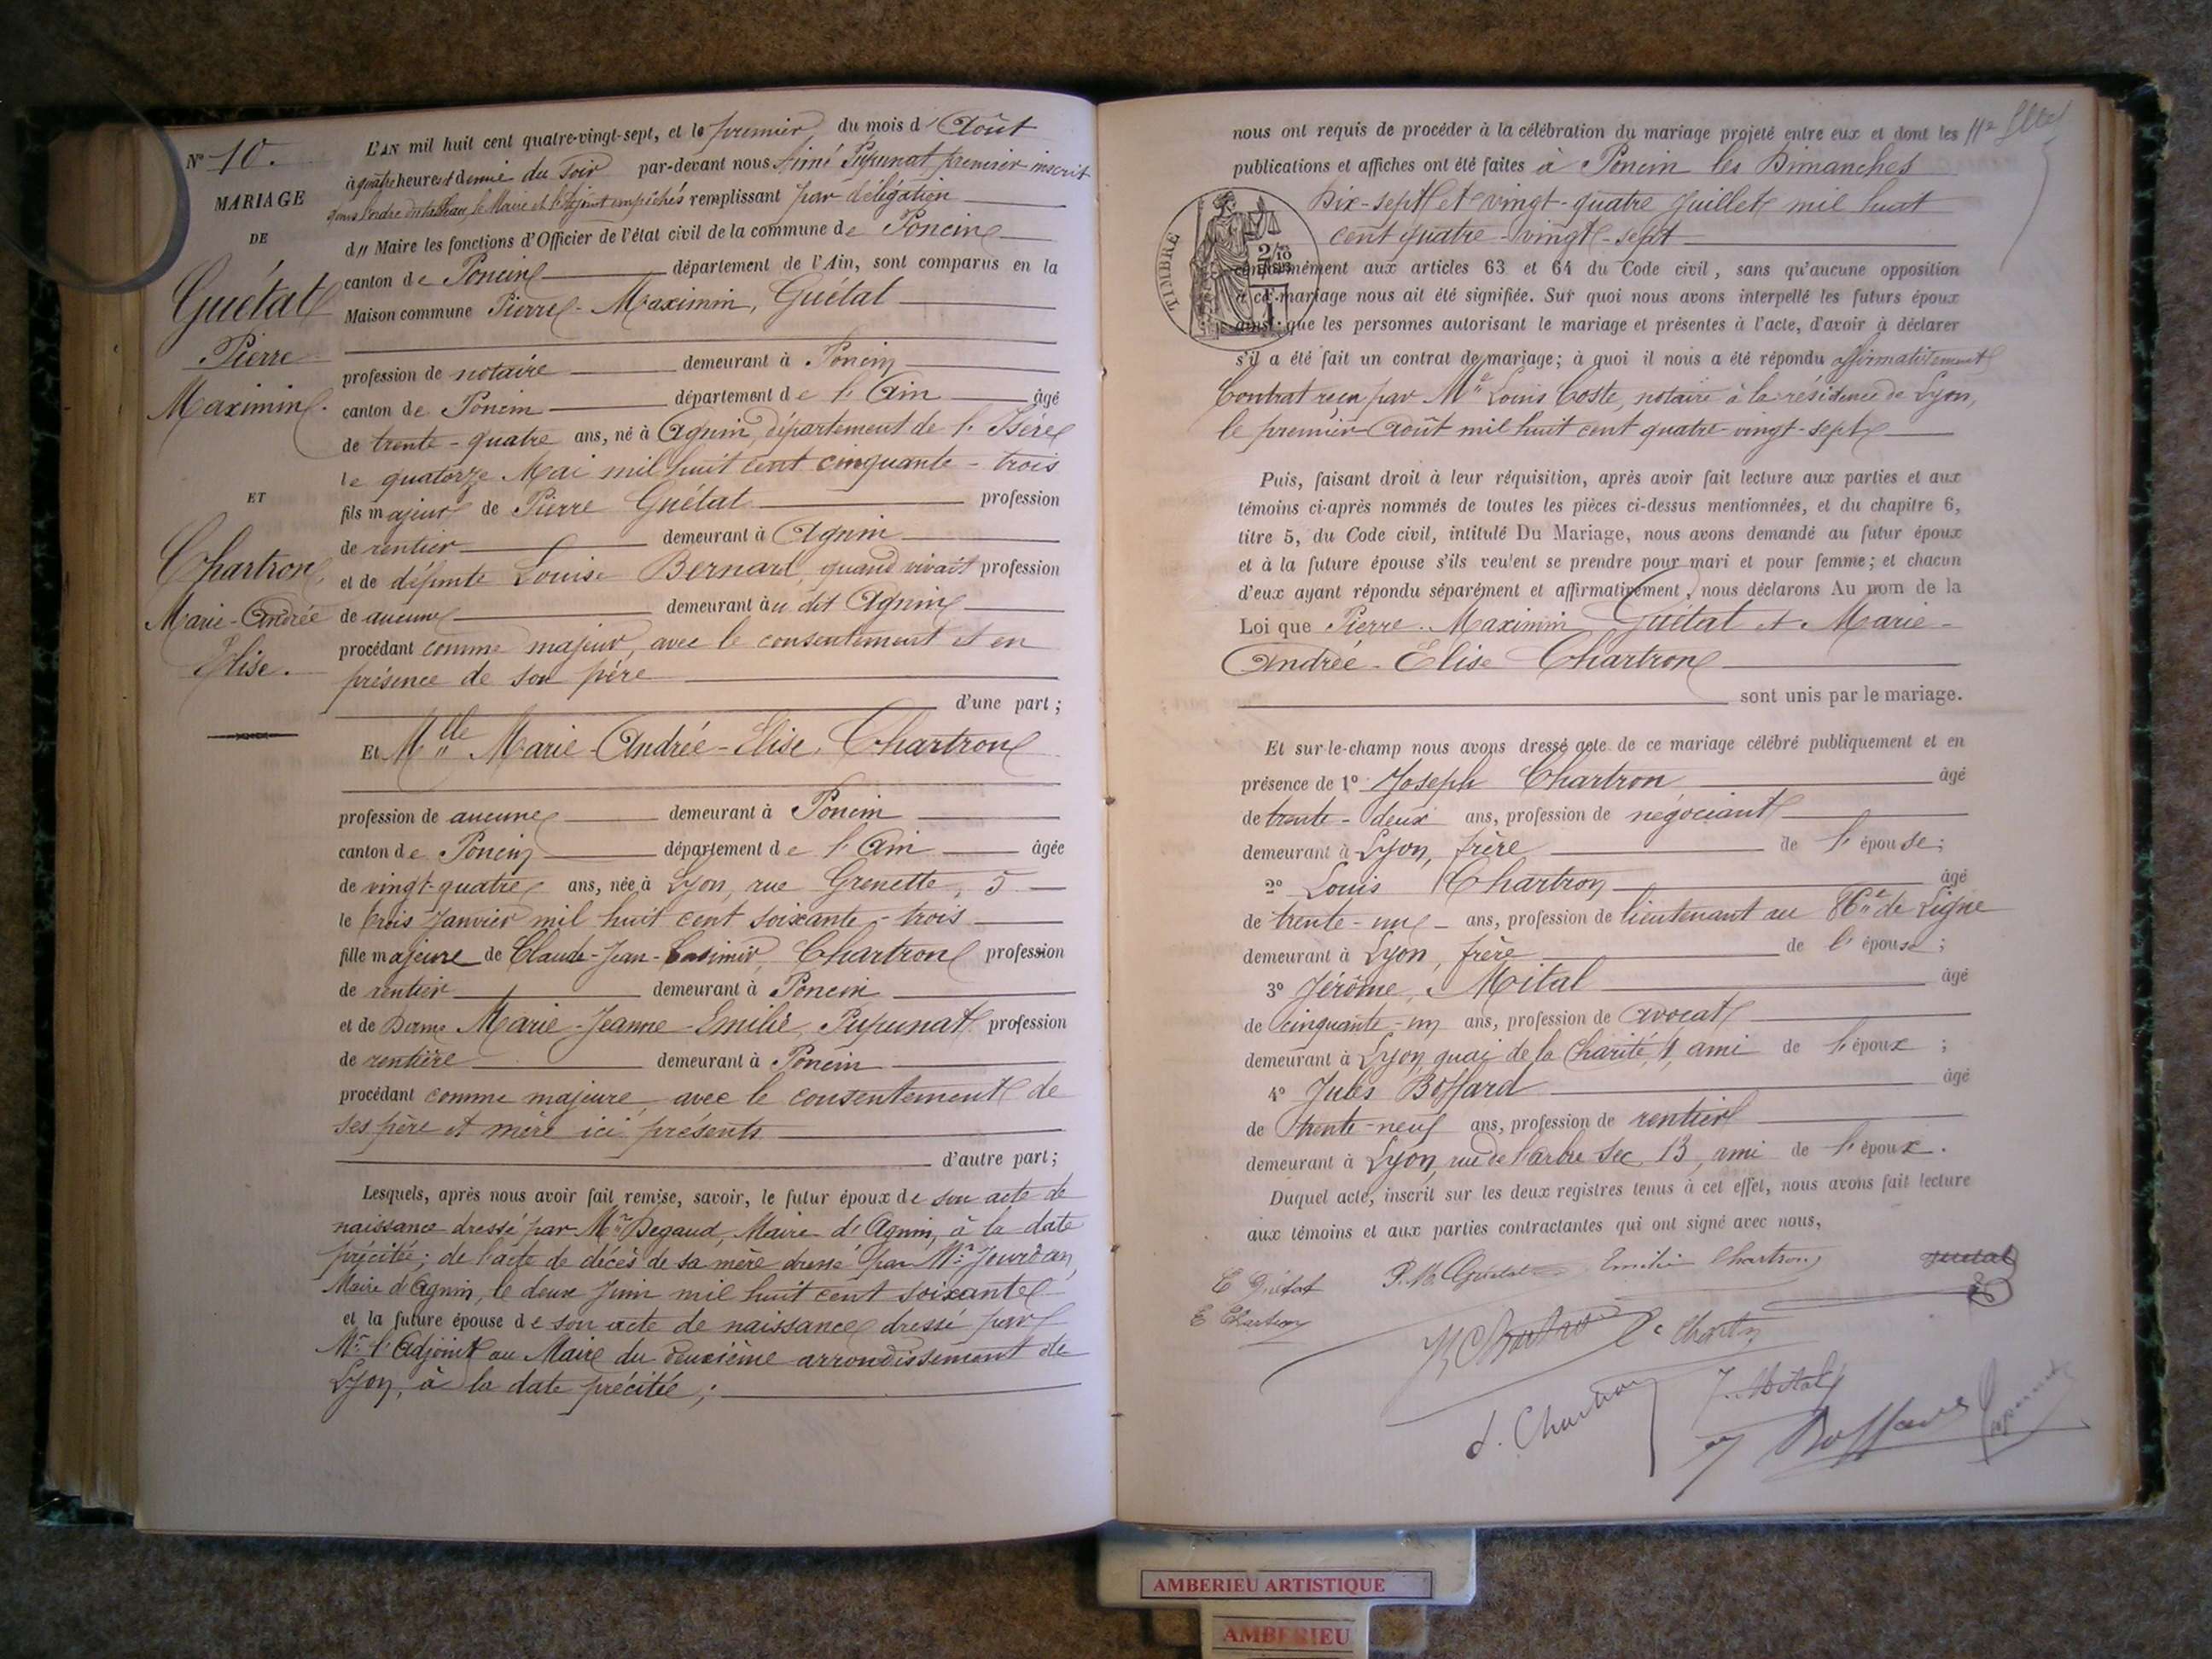 N° 10.
MARIAGE
DE
Guétat
Pierre
Maximin.
ET
Chartron
Marie-Andrée
Elise.
L'AN mil huit cent quatre-vingt-sept, et le premier du mois d'Août
à quatre heures et demie du soir par-devant nous Aimé Pupunat, premier inscrit
dans l'ordre du tableau le Maire et l'Adjoint empêchés remplissant par délégation
d" Maire les fonctions d'Officier de l'état civil de la commune de Poncin
canton de Poncin département de l'Ain, sont comparus en la
Maison commune Pierre-Maximin, Guétat
profession de notaire demeurant à Poncin
canton de Poncin département de l'Ain âgé
de trente-quatre ans, né à Agnin, département de l'Isère
le quatorze Mai mil huit cent cinquante-trois
fils majeur de Pierre Guétat profession
de rentier demeurant à Agnin
et de défunte Louise Bernard, quand vivait profession
de aucune demeurant au dit Agnin
procédant comme majeur, avec le consentement et en
présence de son père
d'une part;
Et Mlle Marie-Andrée-Elise, Chartron
profession de aucune demeurant à Poncin
canton de Poncin département de l'Ain âgée
de vingt-quatre ans, née à Lyon, rue Grenette, 5
le trois Janvier mil huit cent soixante-trois
fille majeure de Claude-Jean-Casimir, Chartron profession
de rentier demeurant à Poncin
et de Dame Marie-Jeanne-Emilie, Pupunat profession
de rentière demeurant à Poncin
procédant comme majeure, avec le consentement de
ses père et mère ici présents
d'autre part;
Lesquels, après nous avoir fait remise, savoir, le futur époux de son acte de
naissance dressé par Mr Degaud, Maire d'Agnin, à la date
précitée; de l'acte de décès de sa mère dressé par Mr Jourdan,
Maire d'Agnin, le deux Juin mil huit cent soixante
et la future épouse de son acte de naissance dressé par
Mr l'Adjoint au Maire du deuxième arrondissement de
Lyon, à la date précitée;
nous ont requis de procéder à la célébration du mariage projeté entre eux et dont les
publications et affiches ont été faites à Poncin les Dimanches
Dix-sept et vingt-quatre Juillet mil huit
cent quatre-vingt-sept
TIMBRE
conformément aux articles 63 et 64 du Code civil, sans qu'aucune opposition
à ce mariage nous ait été signifiée. Sur quoi nous avons interpellé les futurs époux
ainsi que les personnes autorisant le mariage et présentes à l'acte, d'avoir à déclarer
s'il a été fait un contrat de mariage; à quoi il nous a été répondu affirmativement
Contrat reçu par Me Louis Coste, notaire à la résidence de Lyon,
le premier Août mil huit cent quatre-vingt-sept
Puis, faisant droit à leur réquisition, après avoir fait lecture aux parties et aux
témoins ci-après nommés de toutes les pièces ci-dessus mentionnées, et du chapitre 6,
titre 5, du Code civil, intitulé Du Mariage, nous avons demandé au futur époux
et à la future épouse s'ils veulent se prendre pour mari et pour femme; et chacun
d'eux ayant répondu séparément et affirmativement, nous déclarons Au nom de la
Loi que Pierre-Maximin Guétat et Marie-
Andrée-Elise Chartron
sont unis par le mariage.
Et sur-le-champ nous avons dressé acte de ce mariage célébré publiquement et en
présence de 1° Joseph Chartron âgé
de trente-deux ans, profession de négociant
demeurant à Lyon, frère de l'épouse;
2° Louis Chartron âgé
de trente-un ans, profession de lieutenant au 86e de Ligne
demeurant à Lyon, frère de l'épouse;
3° Jérôme, Mital âgé
de cinquante-un ans, profession de avocat
demeurant à Lyon, quai de la Charité, 1, ami de l'époux;
4° Jules Boffard âgé
de trente-neuf ans, profession de rentier
demeurant à Lyon, rue de l'arbre Sec, 13, ami de l'époux.
Duquel acte, inscrit sur les deux registres tenus à cet effet, nous avons fait lecture
aux témoins et aux parties contractantes qui ont signé avec nous,
E Guétat P.M. Guétat Emilie Chartron Guétat
E Chartron
J. Chartron C. Chartron
L. Chartron J. Mital
J Boffard
AMBERIEU ARTISTIQUE
AMBERIEU